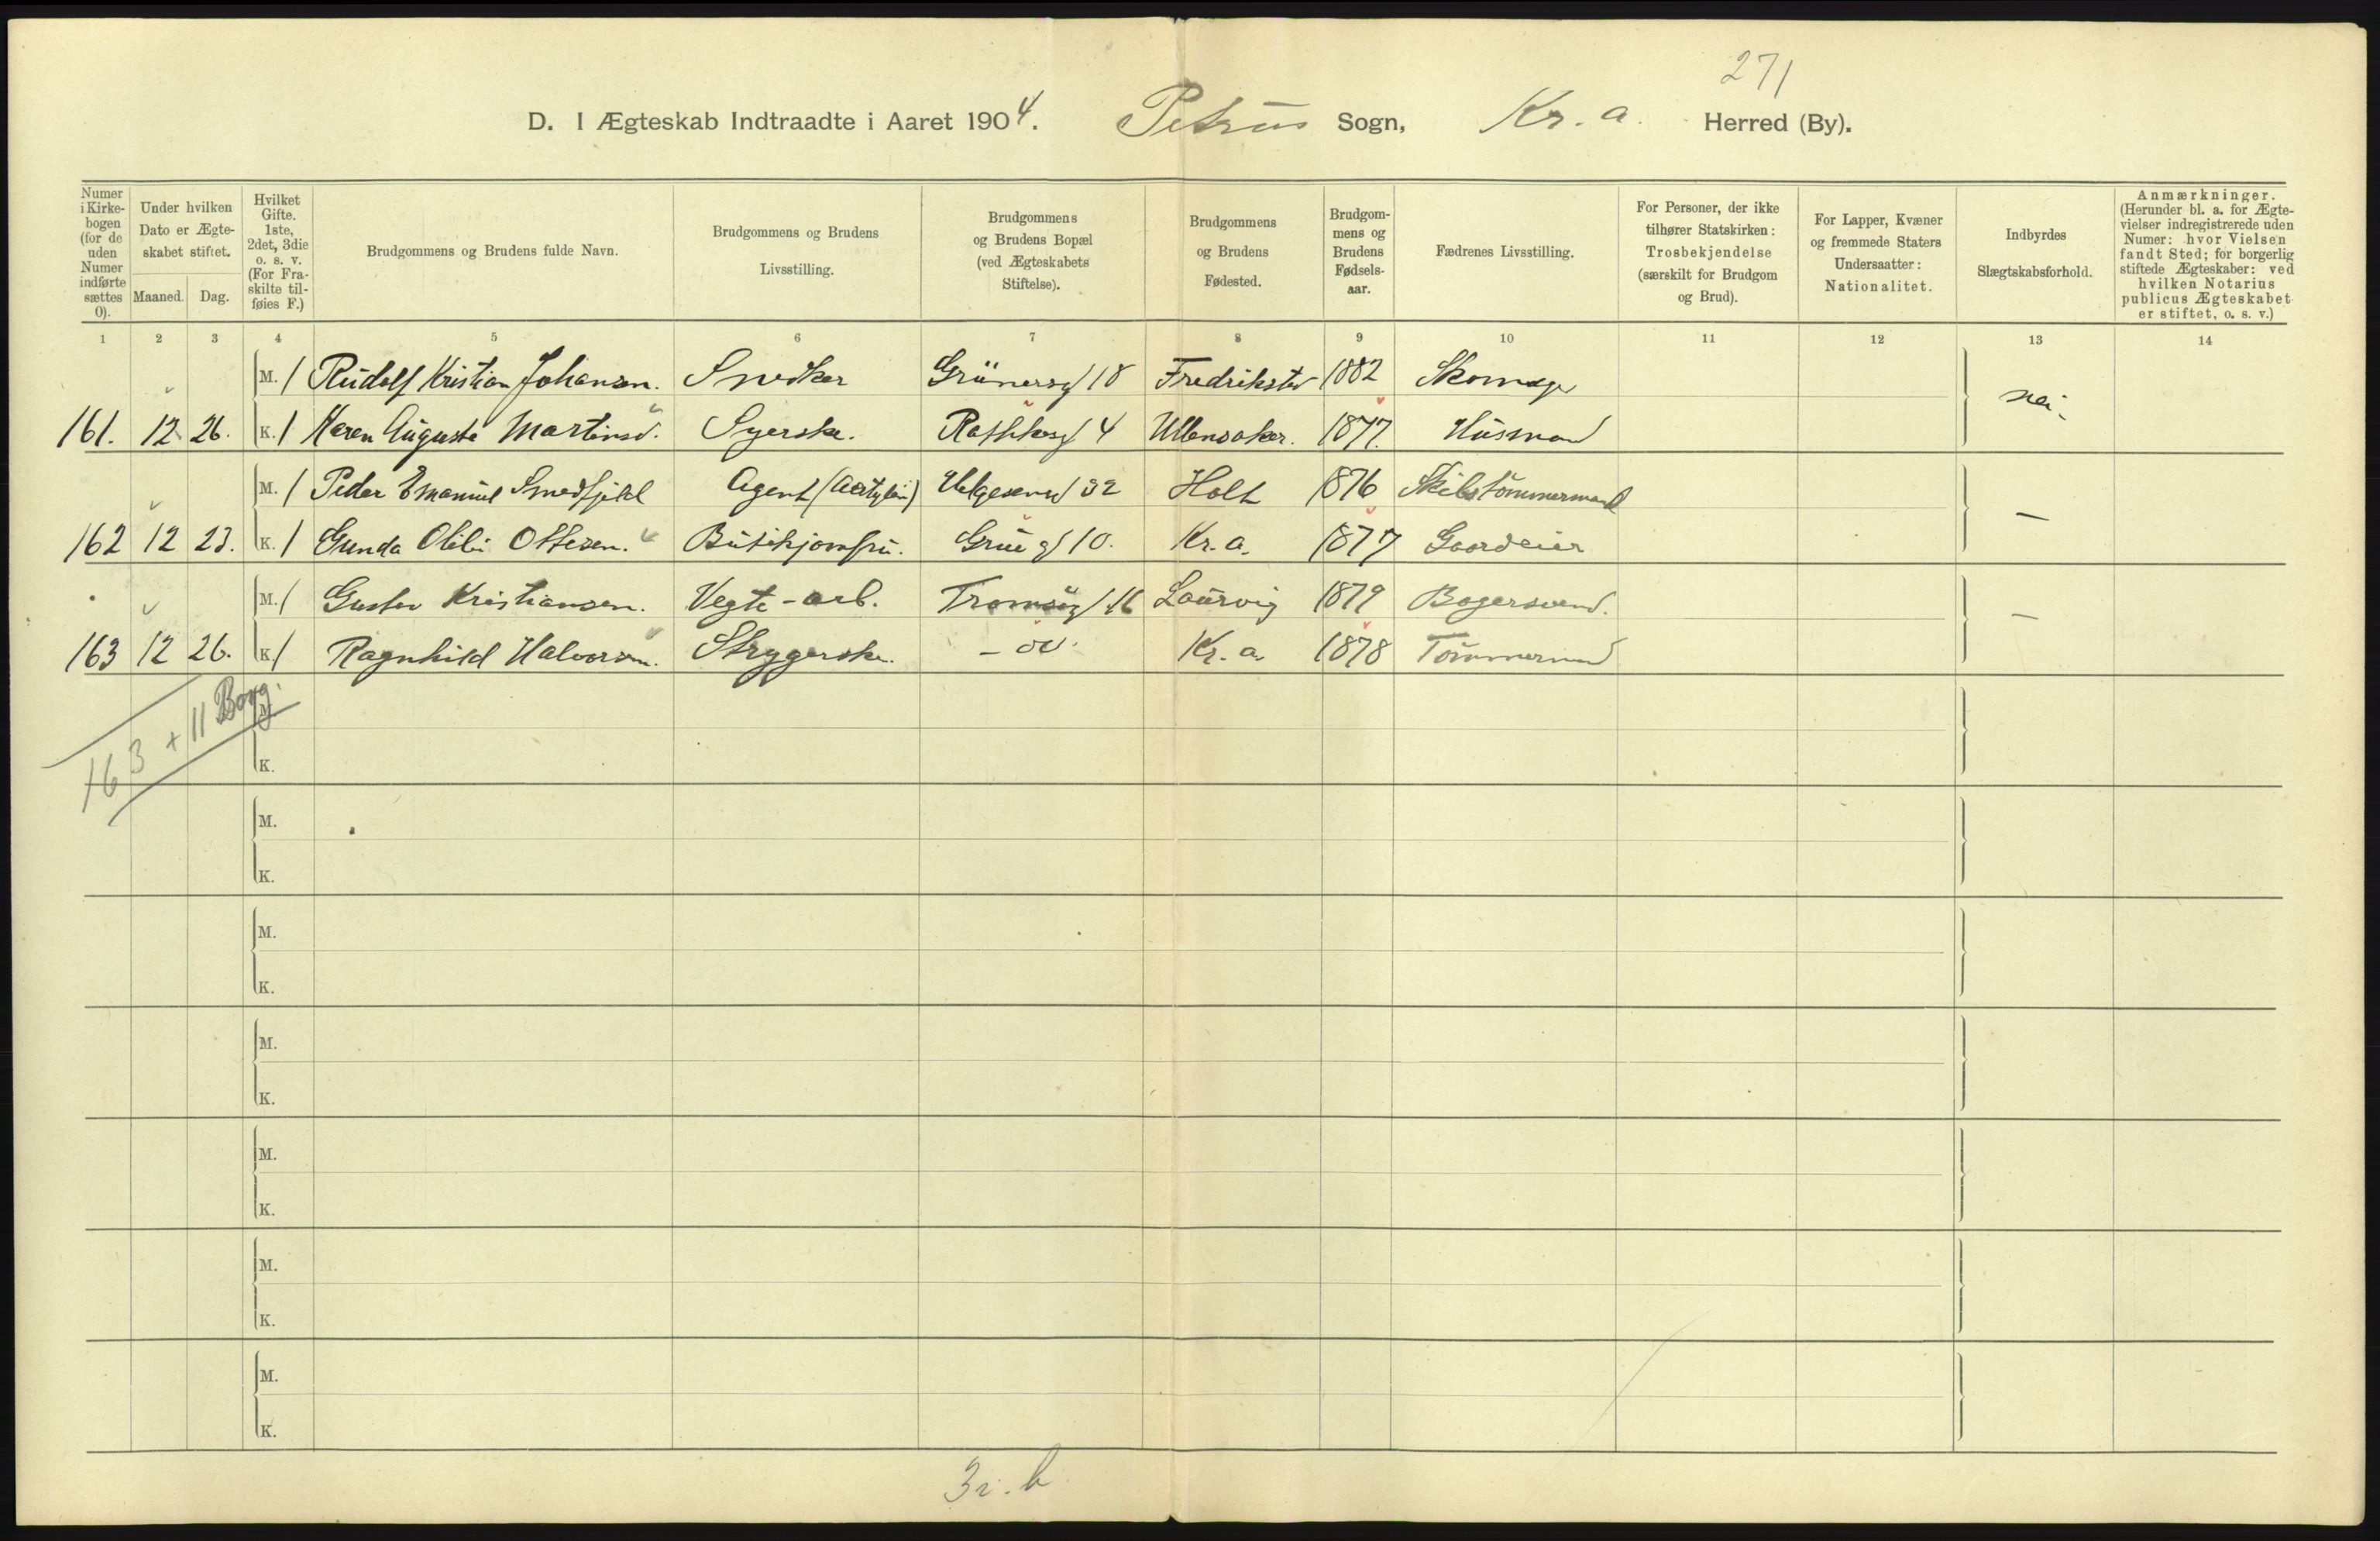 271
D. I Ægteskab Indtraadte i Aaret 1904. Petrus Sogn, Kr. a. Herred (By).
Numer i Kirkebogen (for de uden Numer indførte sættes 0).
Under hvilken Dato er Ægteskabet stiftet.
Maaned. Dag.
Hvilket Gifte. 1ste, 2det, 3die o. s. v. (For Fraskilte tilføies F.)
Brudgommens og Brudens fulde Navn.
Brudgommens og Brudens Livsstilling.
Brudgommens og Brudens Bopæl (ved Ægteskabets Stiftelse).
Brudgommens og Brudens Fødested.
Brudgommens og Brudens Fødselsaar.
Fædrenes Livsstilling.
For Personer, der ikke tilhører Statskirken: Trosbekjendelse (særskilt for Brudgom og Brud).
For Lapper, Kvæner og fremmede Staters Undersaatter: Nationalitet.
Indbyrdes Slægtskabsforhold.
Anmærkninger. (Herunder bl. a. for Ægtevielser indregistrerede uden Numer: hvor Vielsen fandt Sted; for borgerlig stiftede Ægteskaber: ved hvilken Notarius publicus Ægteskabet er stiftet, o. s. v.)
1 2 3 4 5 6 7 8 9 10 11 12 13 14
M. 1 Rudolf Kristian Johansen. Snedker Grünersg 18 Fredrikstad 1882 Skomager
161. 12 26. K. 1 Karen Auguste Martinsd. Syerske. Rathkesg 4 Ullensaker. 1877. Husmand nei.
M. 1 Peder Emanuel Smedfjeld Agent Helgesensg 32 Holt 1876 Skibstömmermand
162 12 23. K. 1 Gunda Olibi Ottesen. Butikjomfru. Grüng 10. Kr. a. 1877 Gaardeier —
M. 1 Gustav Kristiansen. Vegte-arb. Tromsög 16 Laurvig 1879 Bagersvend.
163 12 26. K 1 Ragnhild Halvorsen. Strygerske. - do. Kr. a. 1878 Tömmermand —
163 + 11 Borg.
M.
K.
M.
K.
M.
K.
M.
K.
M.
K.
M.
K.
M.
K.